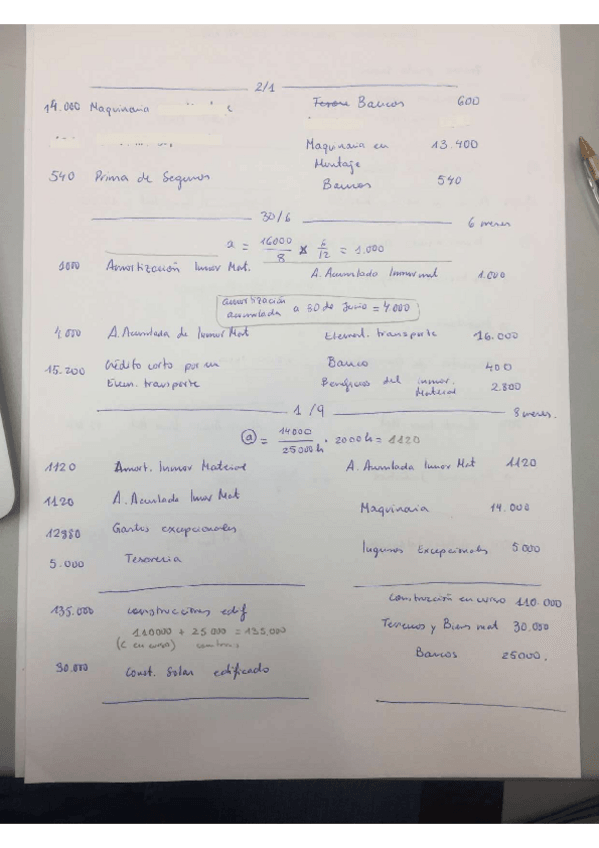 2/1
14.000 Maquinaria Bancos 600
Maquinaria en 13.400
Montaje
540 Prima de Seguros Bancos 540
30/6 6 meses
a = 16000/8 x 6/12 = 1.000
1000 Amortización Inmov Mat. A. Acumulada Inmov mat 1.000
amortización
acumulada a 30 de Junio = 4000
4.000 A. Acumulada de Inmov Mat Element. transporte 16.000
15.200 Crédito corto por en Banco 400
Elem. transporte Beneficios del inmov. 2.800
Material
1/9 8 meses.
a = 14000/25000h . 2000h = 1120
1120 Amort. Inmov Material A. Acumulada Inmov Mat 1120
1120 A. Acumlada Inmov Mat
Maquinaria 14.000
12880 Gastos excepcionales
Ingresos Excepcionales 5000
5.000 Tesoreria
Construcción en curso 110.000
135.000 construcciones edif
110000 + 25000 = 135.000 Terrenos y Bien nat 30.000
(C en curso)
Bancos 25000.
30.000 Const. Solar edificado